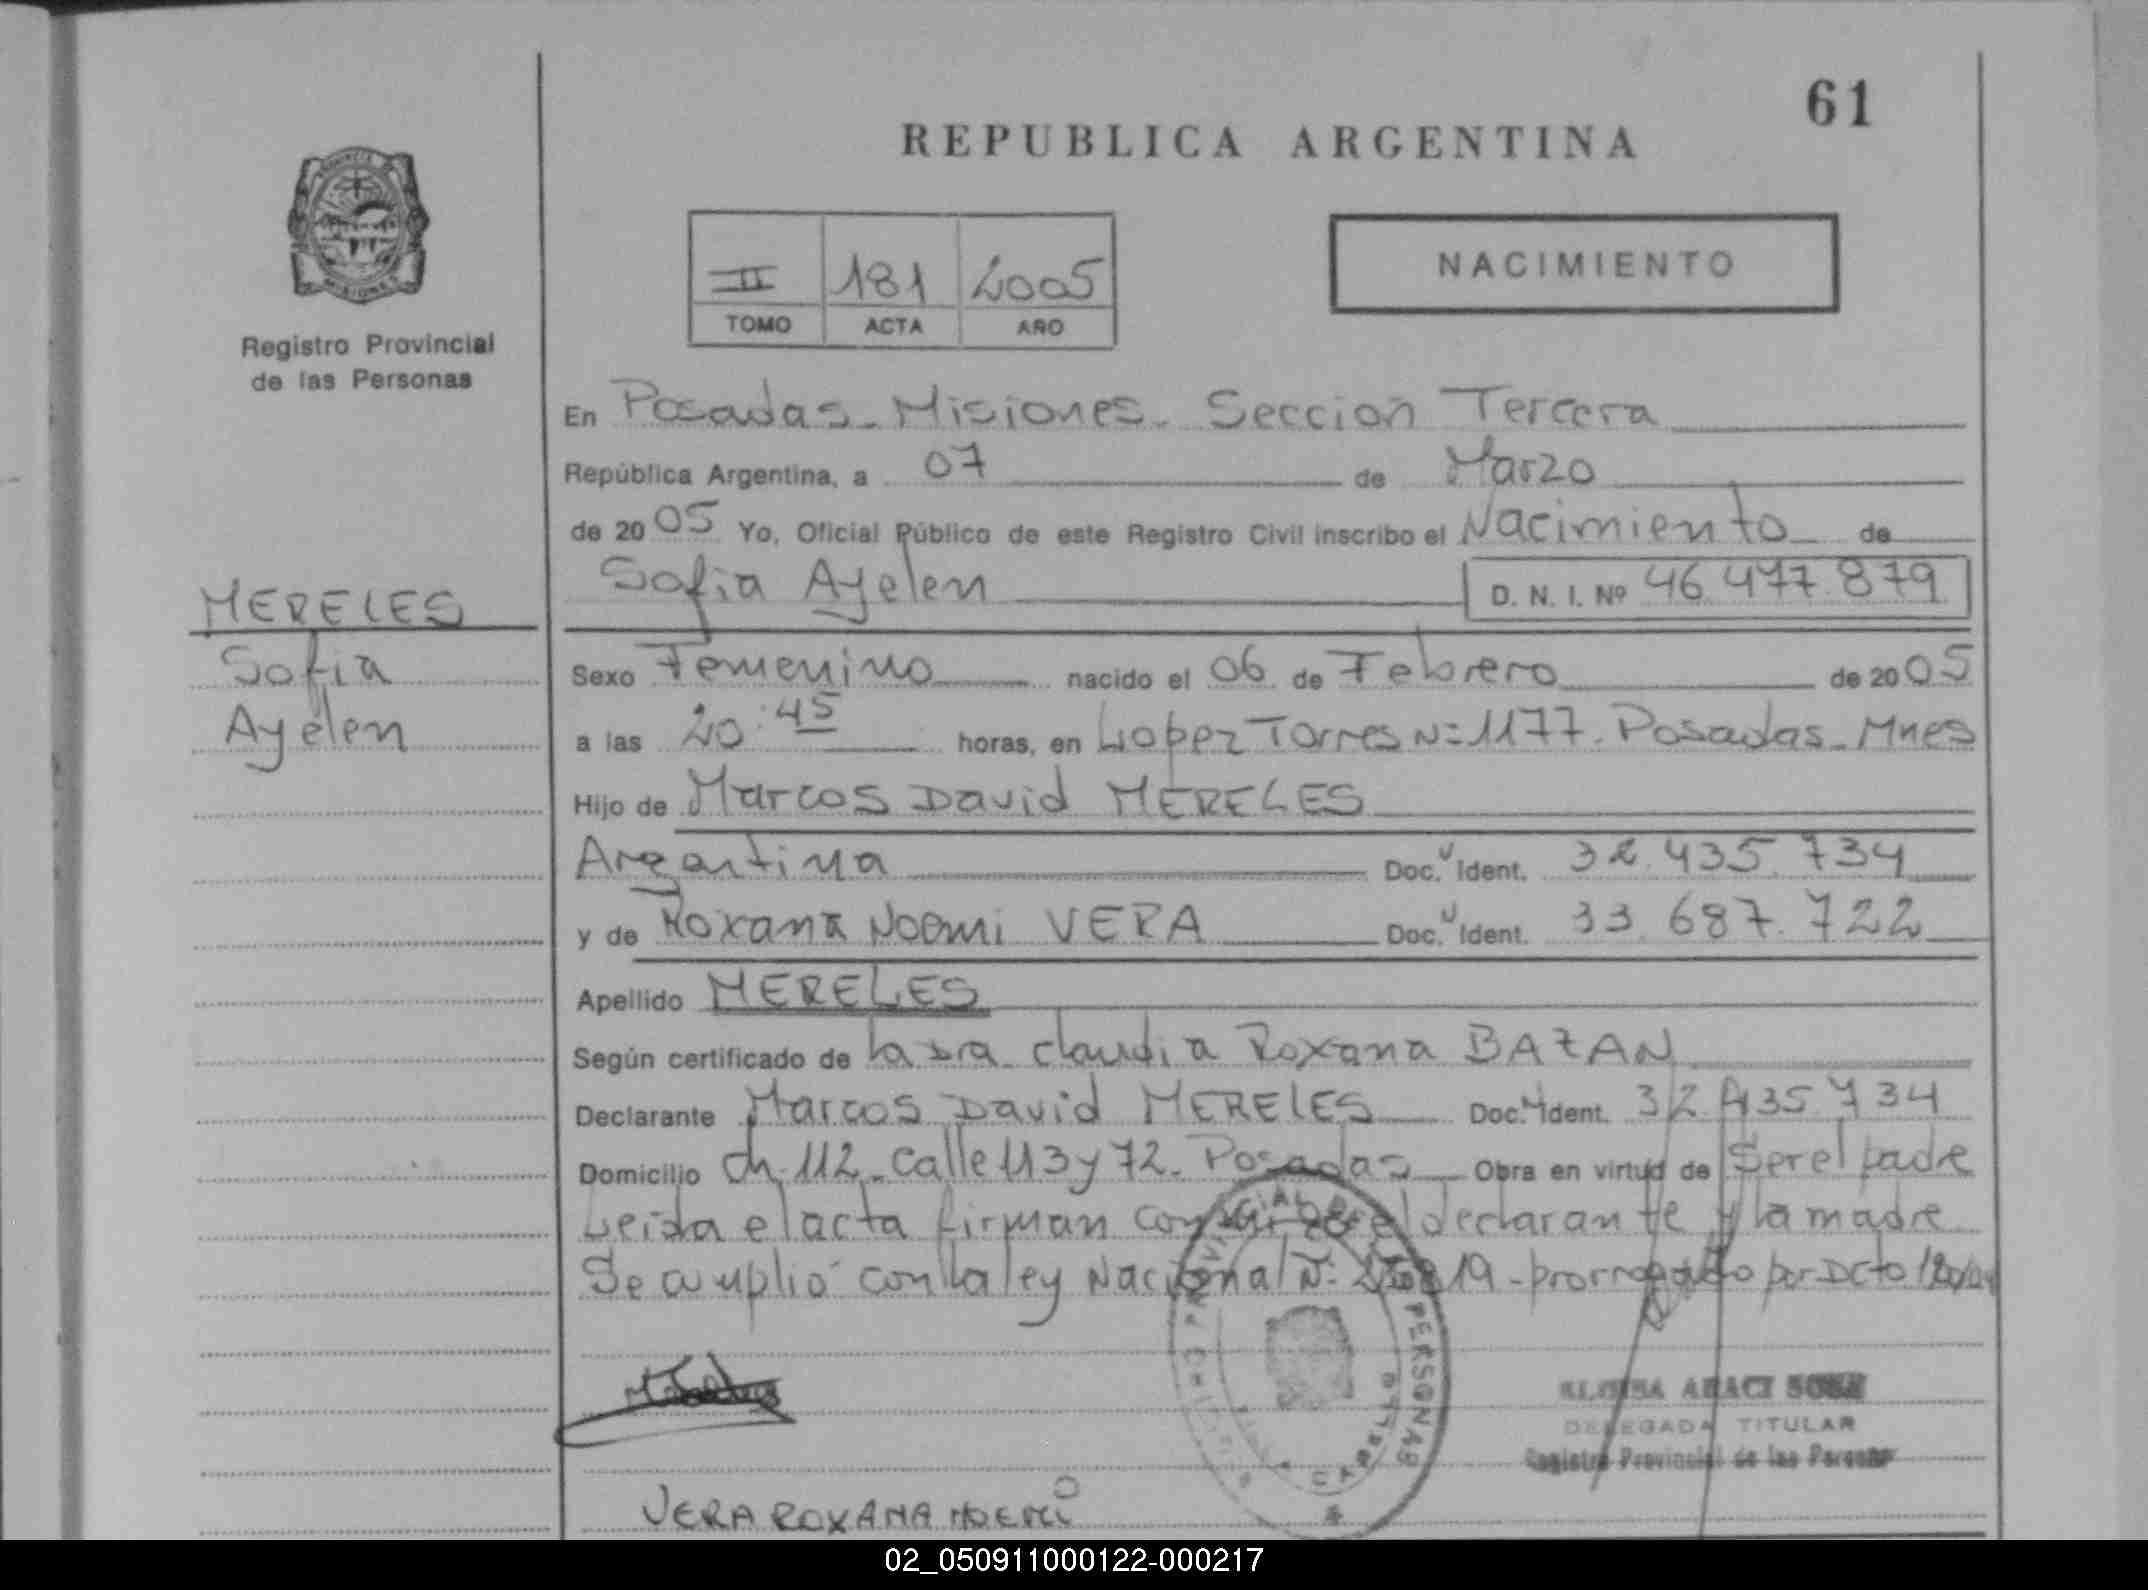 61
REPUBLICA ARGENTINA
II 181 2005
TOMO ACTA AÑO
NACIMIENTO
Registro Provincial
de las Personas
En Posadas - Misiones - Sección Tercera
República Argentina, a 07 de Marzo
de 2005 Yo, Oficial Público de este Registro Civil inscribo el Nacimiento de
Sofia Ayelen D. N. I. Nº 46.477.879
MERELES
Sofia
Ayelen
Sexo Femenino nacido el 06 de Febrero de 2005
a las 20:45 horas, en Lopez Torres Nº 1177. Posadas - Mnes
Hijo de Marcos David MERELES
Argentina Doc. U Ident. 32.435.734
y de Roxana Noemi VERA Doc. U Ident. 33.687.722
Apellido MERELES
Según certificado de la Dra. Claudia Roxana BAZAN
Declarante Marcos David MERELES Doc. U Ident. 32.435.734
Domicilio Ch. 112 - Calle 113 y 72 - Posadas Obra en virtud de Ser el padre
Leida el acta firman conmigo el declarante y la madre
Se cumplió con la ley Nacional Nº 19 - prorrogado por Dcto
PERSONAS
DELEGADA TITULAR
Registro Provincial de las Personas
VERA ROXANA NOEMI
02_050911000122-000217